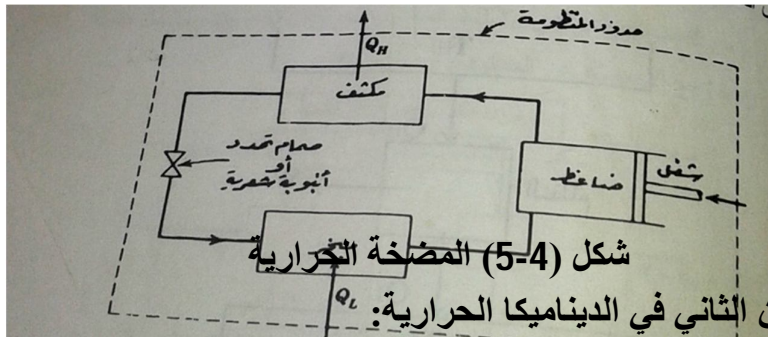 حدود المنظومة
Q_H
مكثف
صمام تمدد
أو
أنبوبة شعرية
ضاغط
شغل
شكل (4-5) المضخة الحرارية
Q_L
الثاني في الديناميكا الحرارية: